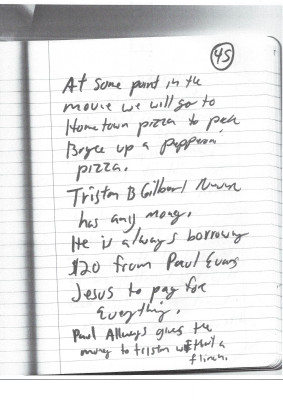 45
At some point in the
movie we will go to
Hometown pizza to pick
Bryce up a pepperoni
pizza.
Triston B Gilbert Never
has any money.
He is always borrowing
$20 from Paul Evans
Jesus to pay for
Everything.
Paul Allways gives the
money to triston without a
flinch.